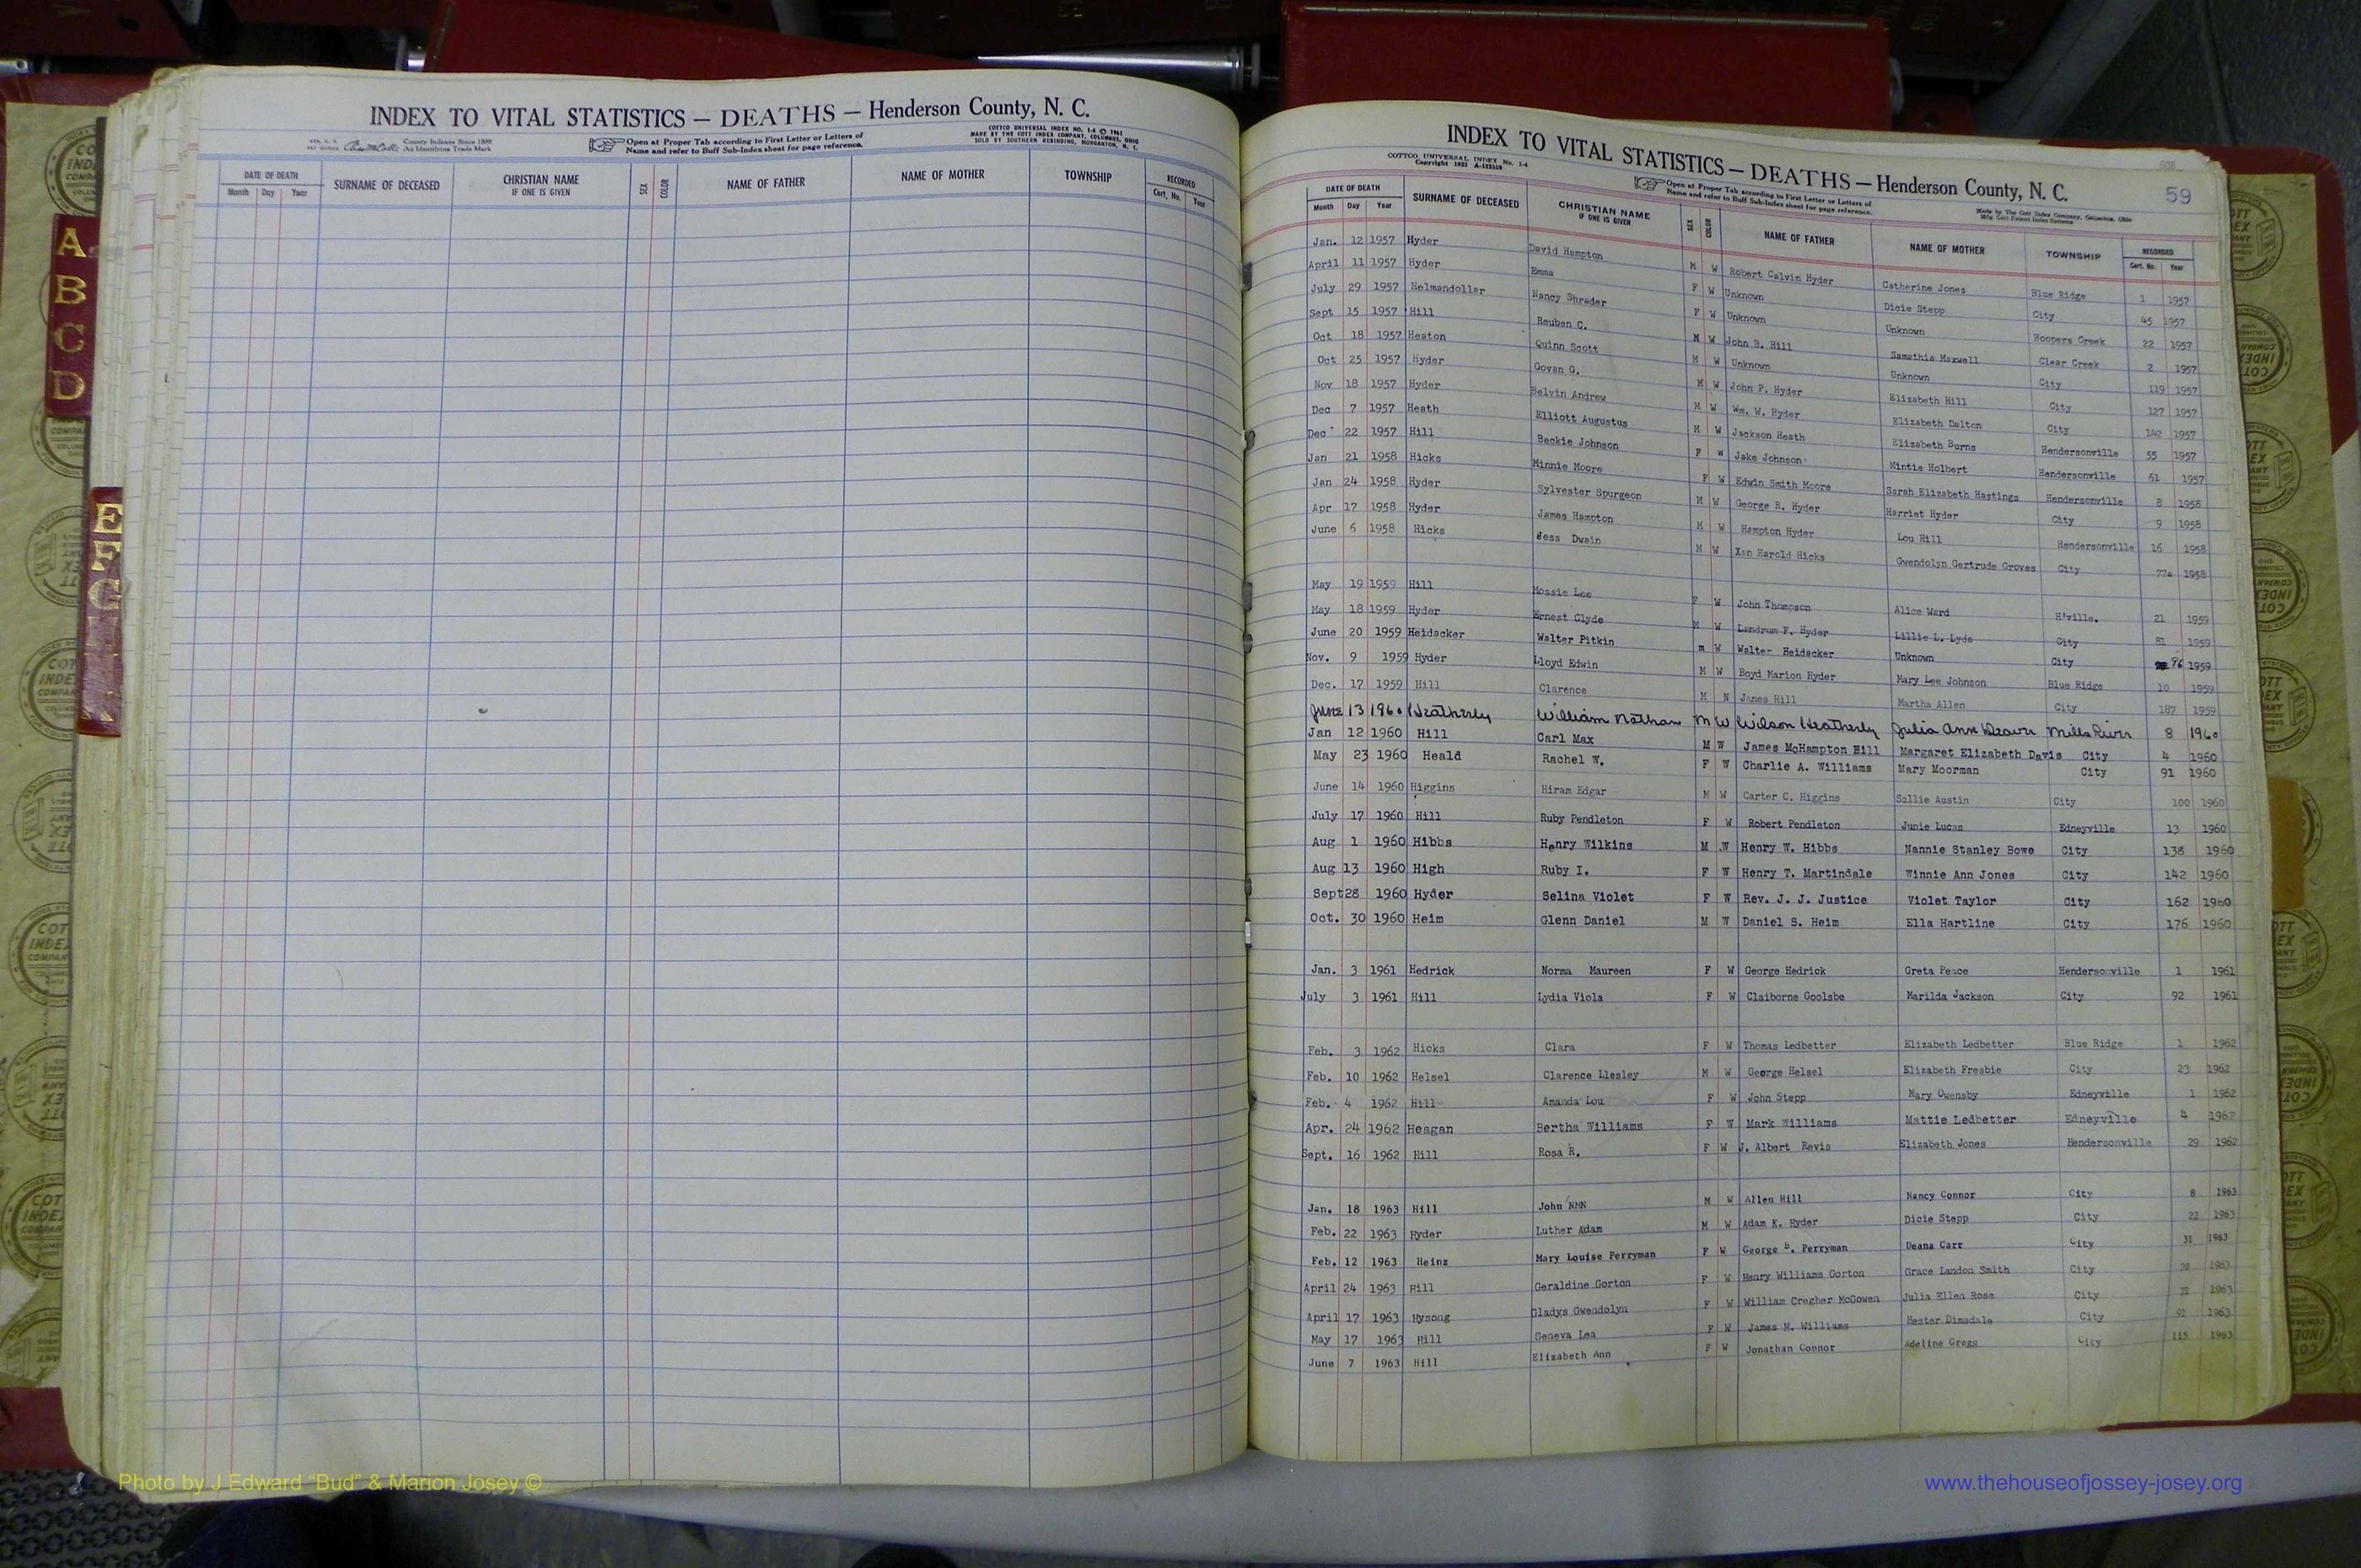 INDEX TO VITAL STATISTICS — DEATHS — Henderson County, N. C.
County Indexes Since 1888
An Identifying Trade Mark
Open at Proper Tab according to First Letter or Letters of
Name and refer to Buff Sub-Index sheet for page reference.
COTTCO UNIVERSAL INDEX NO. 1-4 © 1961
MADE BY THE COTT INDEX COMPANY, COLUMBUS, OHIO
SOLD BY SOUTHERN REBINDING, MORGANTON, N. C.
DATE OF DEATH SURNAME OF DECEASED CHRISTIAN NAME IF ONE IS GIVEN SEX COLOR NAME OF FATHER NAME OF MOTHER TOWNSHIP RECORDED
Month Day Year Cert. No. Year
A
B
C
D
E
F
G
INDEX TO VITAL STATISTICS — DEATHS — Henderson County, N. C.
59
COTTCO UNIVERSAL INDEX No. 1-4
Open at Proper Tab according to First Letter or Letters of
Name and refer to Buff Sub-Index sheet for page reference.
Made by The Cott Index Company, Columbus, Ohio
DATE OF DEATH SURNAME OF DECEASED CHRISTIAN NAME IF ONE IS GIVEN SEX COLOR NAME OF FATHER NAME OF MOTHER TOWNSHIP RECORDED
Month Day Year Cert. No. Year
Jan. 12 1957 Hyder David Hampton M W Robert Calvin Hyder Catherine Jones Blue Ridge 1 1957
April 11 1957 Hyder Emma F W Unknown Dicie Stepp City 45 1957
July 29 1957 Helmandollar Nancy Shrader F W Unknown Unknown Hoopers Creek 22 1957
Sept 15 1957 Hill Reuben C. M W John B. Hill Samathia Maxwell Clear Creek 2 1957
Oct 18 1957 Heaton Quinn Scott M W Unknown Unknown City 119 1957
Oct 25 1957 Hyder Govan G. M W John P. Hyder Elizabeth Hill City 127 1957
Nov 18 1957 Hyder Belvin Andrew M W Wm. W. Hyder Elizabeth Dalton City 142 1957
Dec 7 1957 Heath Elliott Augustus M W Jackson Heath Elizabeth Burns Hendersonville 55 1957
Dec 22 1957 Hill Beckie Johnson F W Jake Johnson Mintie Holbert Hendersonville 61 1957
Jan 21 1958 Hicks Minnie Moore F W Edwin Smith Moore Sarah Elizabeth Hastings Hendersonville 8 1958
Jan 24 1958 Hyder Sylvester Spurgeon M W George R. Hyder Harriet Hyder City 9 1958
Apr 17 1958 Hyder James Hampton M W Hampton Hyder Lou Hill Hendersonville 16 1958
June 6 1958 Hicks Jess Dwain M W Xan Harold Hicks Gwendolyn Gertrude Groves City 77a 1958
May 19 1959 Hill Mossie Lee F W John Thompson Alice Ward H'ville. 21 1959
May 18 1959 Hyder Ernest Clyde M W Landrum F. Hyder Lillie L. Lyda City 81 1959
June 20 1959 Heidacker Walter Pitkin m W Walter Heidacker Unknown City 96 1959
Nov. 9 1959 Hyder Lloyd Edwin M W Boyd Marion Hyder Mary Lee Johnson Blue Ridge 10 1959
Dec. 17 1959 Hill Clarence M N James Hill Martha Allen City 187 1959
June 13 1960 Heatherly William Nathan M W Wilson Heatherly Julia Ann Deaver Mills River 8 1960
Jan 12 1960 Hill Carl Max M W James McHampton Hill Margaret Elizabeth Davis City 4 1960
May 23 1960 Heald Rachel W. F W Charlie A. Williams Mary Moorman City 91 1960
June 14 1960 Higgins Hiram Edgar M W Carter C. Higgins Sallie Austin City 100 1960
July 17 1960 Hill Ruby Pendleton F W Robert Pendleton Junie Lucas Edneyville 13 1960
Aug 1 1960 Hibbs Henry Wilkins M W Henry W. Hibbs Nannie Stanley Bowe City 138 1960
Aug 13 1960 High Ruby I. F W Henry T. Martindale Winnie Ann Jones City 142 1960
Sept 28 1960 Hyder Selina Violet F W Rev. J. J. Justice Violet Taylor City 162 1960
Oct. 30 1960 Heim Glenn Daniel M W Daniel S. Heim Ella Hartline City 176 1960
Jan. 3 1961 Hedrick Norma Maureen F W George Hedrick Greta Peace Hendersonville 1 1961
July 3 1961 Hill Lydia Viola F W Claiborne Goolsbe Marilda Jackson City 92 1961
Feb. 3 1962 Hicks Clara F W Thomas Ledbetter Elizabeth Ledbetter Blue Ridge 1 1962
Feb. 10 1962 Helsel Clarence Llesley M W George Helsel Elizabeth Fresbie City 23 1962
Feb. 4 1962 Hill Amanda Lou F W John Stepp Mary Owensby Edneyville 1 1962
Apr. 24 1962 Heagan Bertha Williams F W Mark Williams Mattie Ledbetter Edneyville 4 1962
Sept. 16 1962 Hill Rosa R. F W J. Albert Revis Elizabeth Jones Hendersonville 29 1962
Jan. 18 1963 Hill John NMN M W Allen Hill Nancy Connor City 8 1963
Feb. 22 1963 Hyder Luther Adam M W Adam K. Hyder Dicie Stepp City 22 1963
Feb. 12 1963 Heinz Mary Louise Perryman F W George B. Perryman Deana Carr City 31 1963
April 24 1963 Hill Geraldine Gorton F W Henry Williams Gorton Grace Landon Smith City 70 1963
April 17 1963 Hysong Gladys Gwendolyn F W William Cregher McGowen Julia Ellen Rose City 1963
May 17 1963 Hill Geneva Lea F W James M. Williams Hester Dimsdale City 91 1963
June 7 1963 Hill Elizabeth Ann F W Jonathan Connor Adeline Gregg City 115 1963
Photo by J Edward “Bud” & Marion Josey ©
www.thehouseofjossey-josey.org